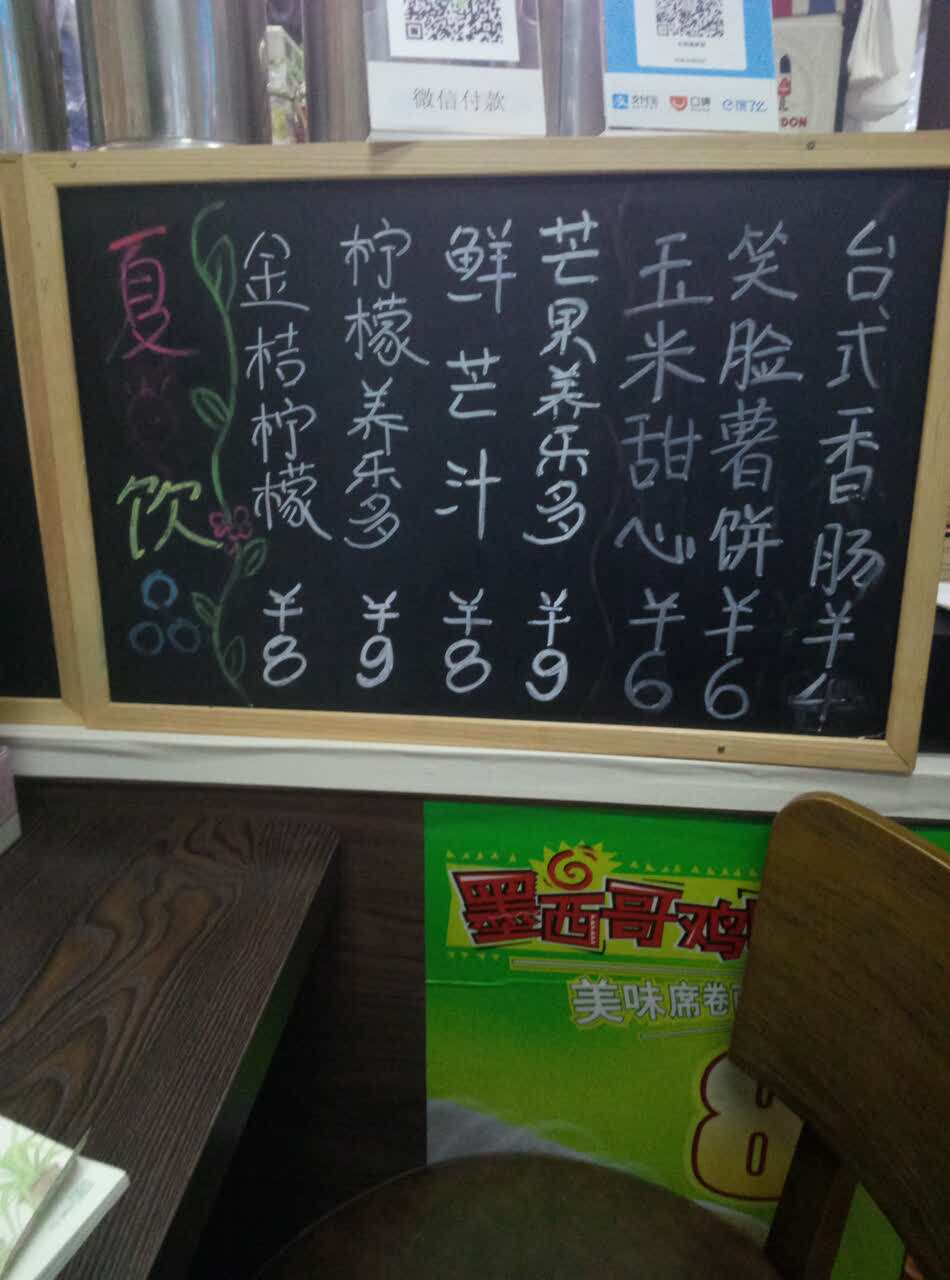 微信付款
支付宝 口碑 饿了么
DON
夏饮
金桔柠檬 ¥8
柠檬养乐多 ¥9
鲜芒汁 ¥8
芒果养乐多 ¥9
玉米甜心 ¥6
笑脸薯饼 ¥6
台式香肠 ¥4
墨西哥鸡
美味席卷
8